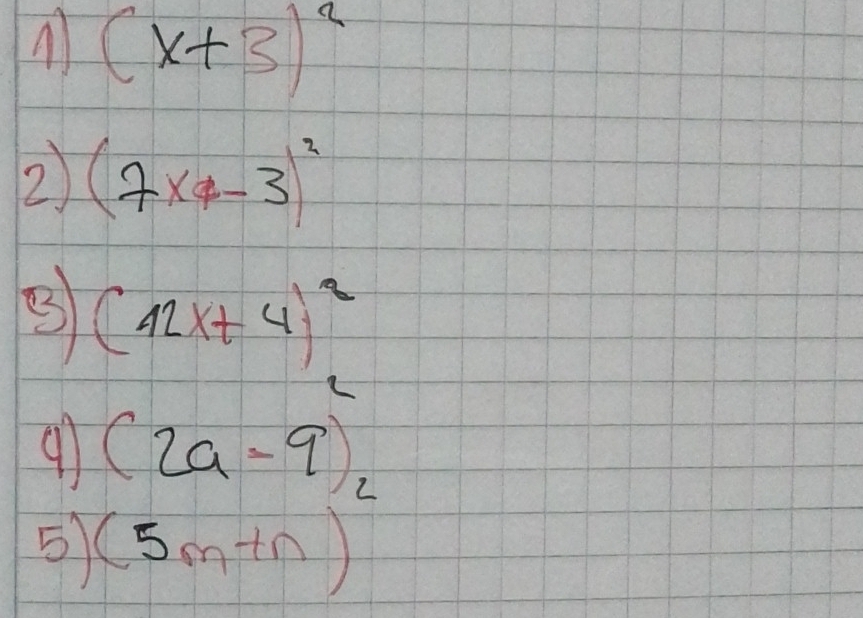 1) (x+3)²
2) (7x-3)²
3) (12x+4)²
4) (2a-9)²
5) (5m+n)²